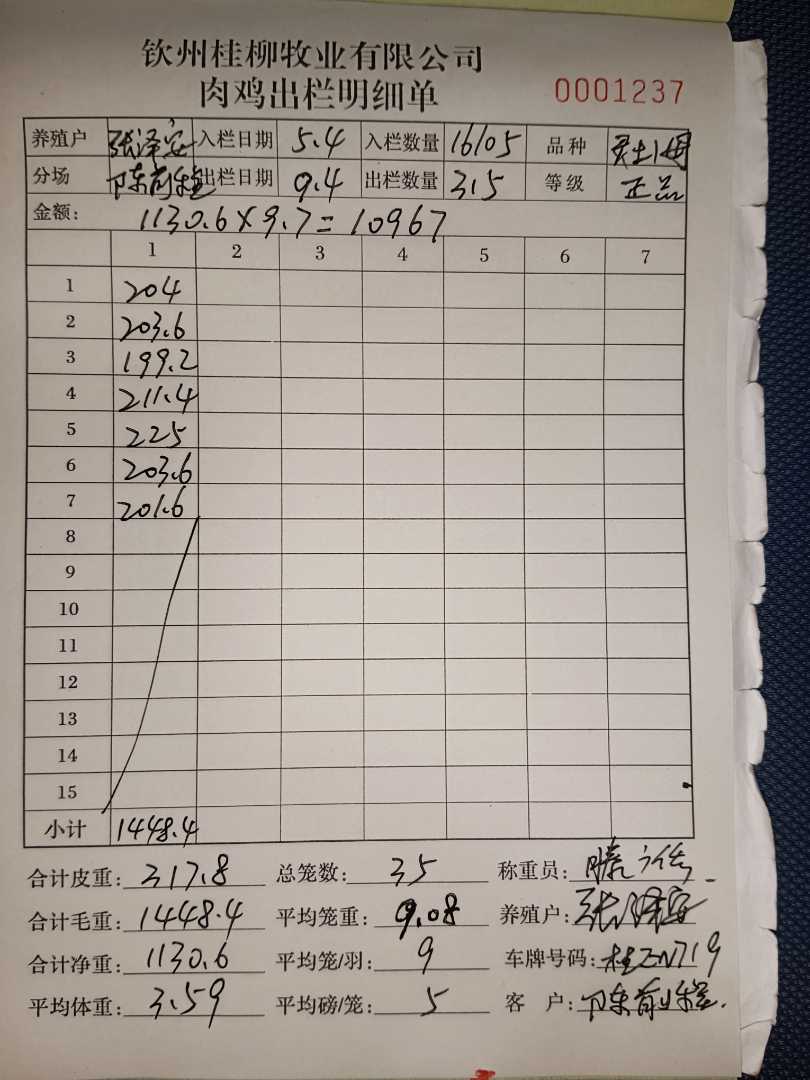 钦州桂柳牧业有限公司
肉鸡出栏明细单 0001237
养殖户 张泽安 入栏日期 5.4 入栏数量 16105 品种
分场 出栏日期 9.4 出栏数量 315 等级 正品
金额: 1130.6×9.7=10967
1 2 3 4 5 6 7
1 204
2 203.6
3 199.2
4 211.4
5 225
6 203.6
7 201.6
8
9
10
11
12
13
14
15
小计 1448.4
合计皮重: 317.8 总笼数: 35 称重员:
合计毛重: 1448.4 平均笼重: 9.08 养殖户: 张泽安
合计净重: 1130.6 平均笼/羽: 9 车牌号码: 桂ZN719
平均体重: 3.59 平均磅/笼: 5 客 户: